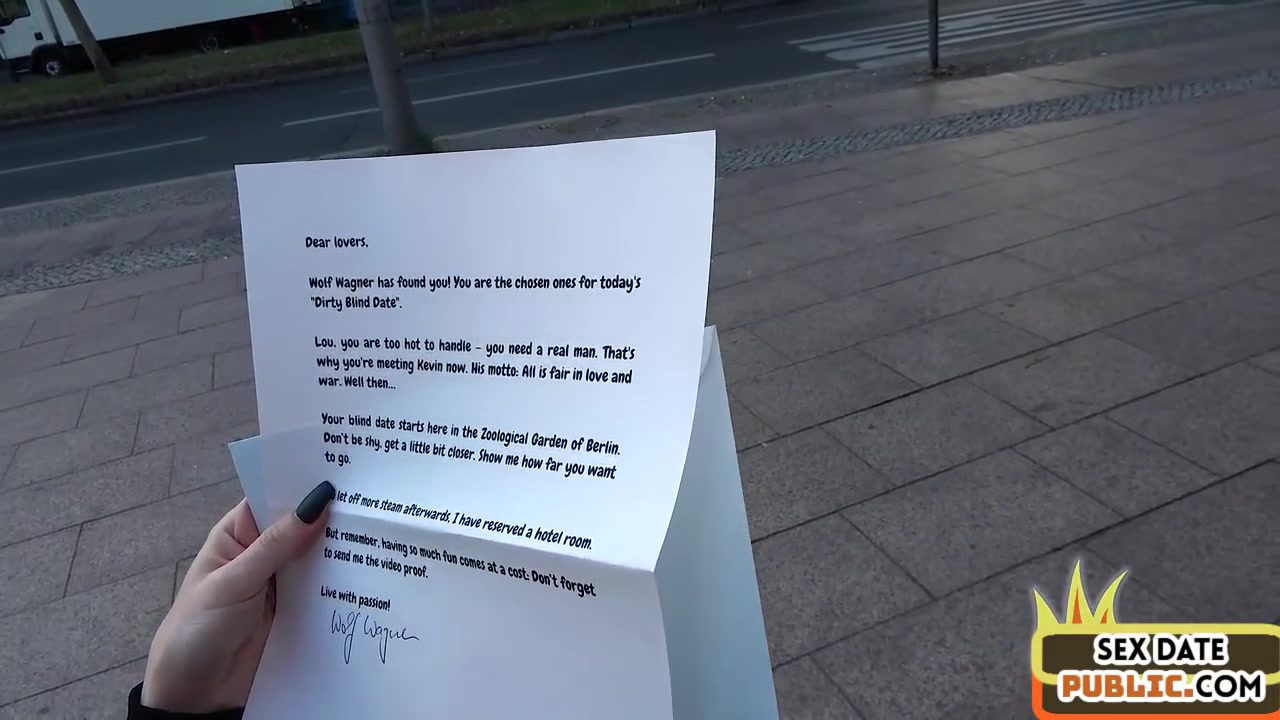 Dear lovers,
Wolf Wagner has found you! You are the chosen ones for today's
"Dirty Blind Date".
Lou, you are too hot to handle - you need a real man. That's
why you're meeting Kevin now. His motto: All is fair in love and
war. Well then...
Your blind date starts here in the Zoological Garden of Berlin.
Don't be shy, get a little bit closer. Show me how far you want
to go.
let off more steam afterwards, I have reserved a hotel room.
But remember, having so much fun comes at a cost: Don't forget
to send me the video proof.
Live with passion!
Wolf Wagner
SEX DATE
PUBLIC.COM